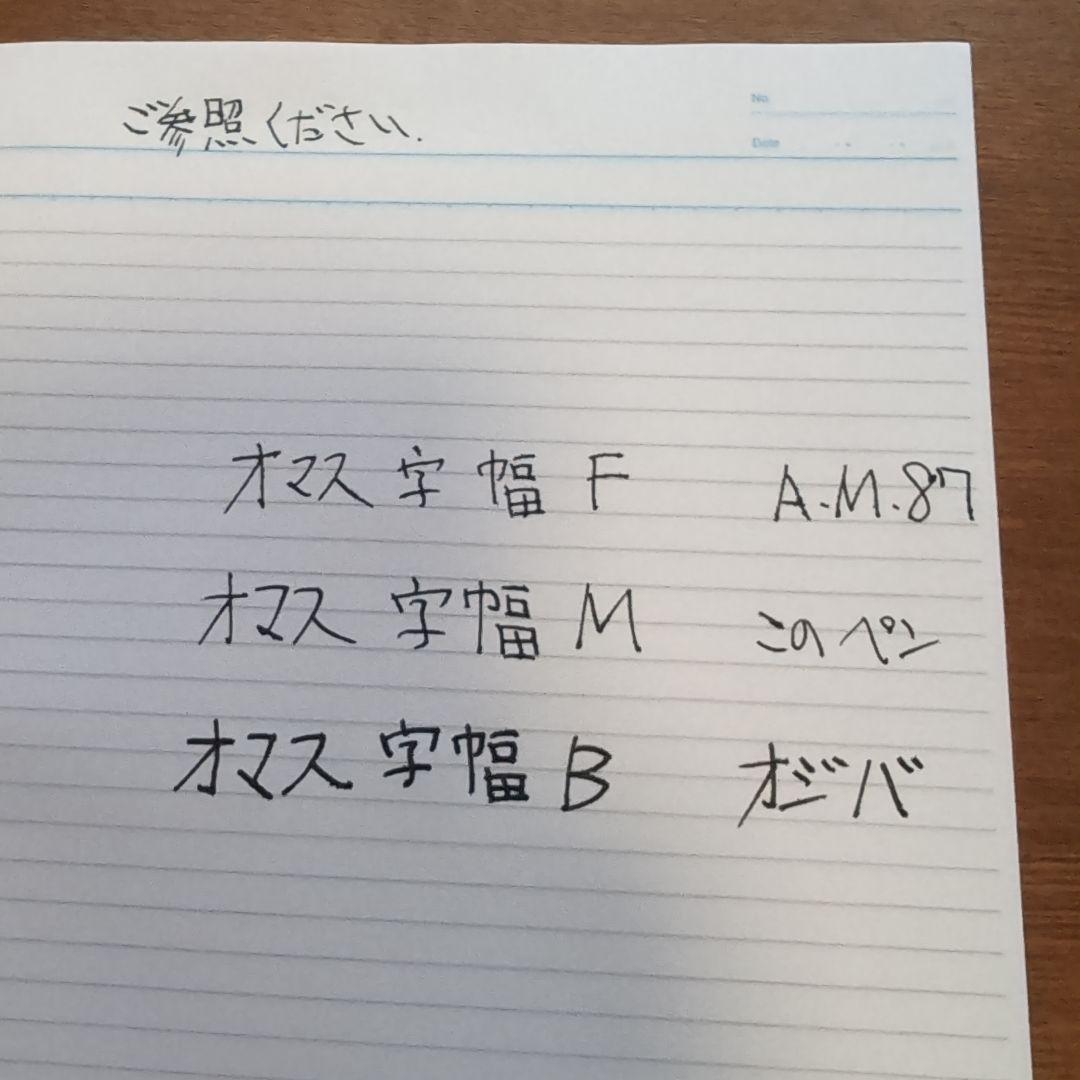 No.
Date
ご参照ください.
オマス 字幅 F A.M.87
オマス 字幅 M このペン
オマス 字幅 B オジバ